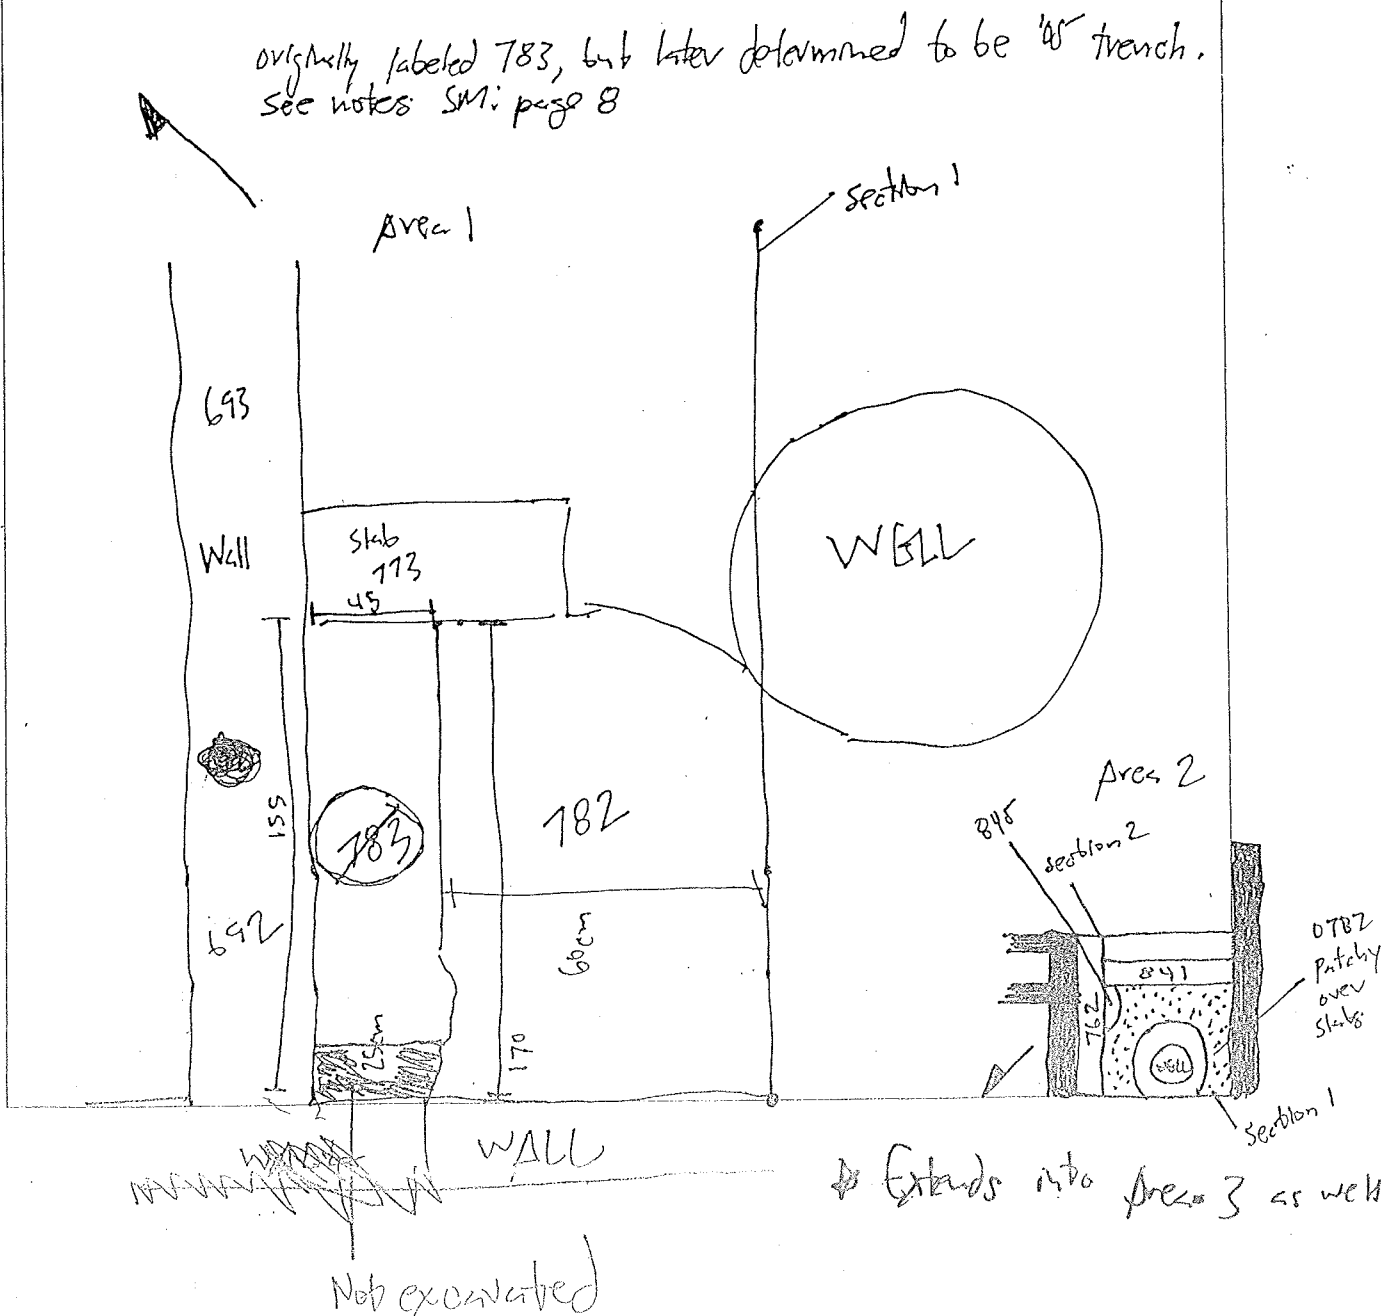 originally labeled 783, but later determined to be '05 trench.
see notes SM: page 8
Area 1
section 1
693
Wall
slab
773
45
WELL
155
783
782
692
60cm
25cm
170
WALL
Not excavated
Area 2
845
section 2
841
762
WELL
0782
patchy
over
slabs
section 1
Extends into Area 3 as well